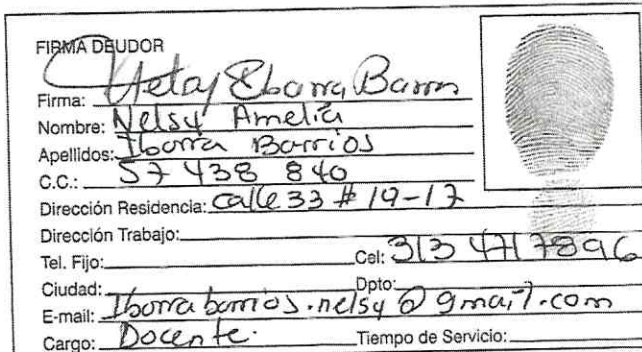 FIRMA DEUDOR
Firma: Barros
Nombre: Nelsy Amelia
Apellidos: Iborra Barrios
C.C.: 57 438 840
Dirección Residencia: calle 33 # 19-17
Dirección Trabajo:
Tel. Fijo: Cel: 313 471 7896
Ciudad: Dpto:
E-mail: Iborrabarrios.nelsy@gmail.com
Cargo: Docente. Tiempo de Servicio: